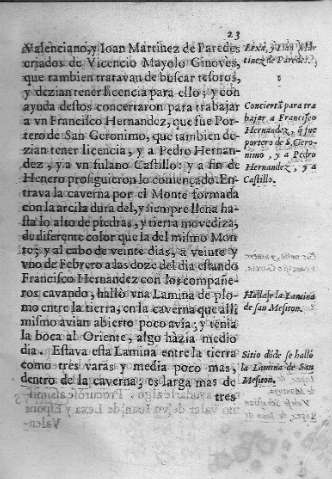 23
Valenciano, y Ioan Martinez de Paredes
criados de Vicencio Mayolo Ginoves,
que tambien tratavan de buscar tesoros,
y dezian tener licencia para ello; y con
ayuda destos concertaron para trabajar
a vn Francisco Hernandez, que fue Por-
tero de San Geronimo, que tambien de-
zian tener licencia, y a Pedro Hernan-
dez, y a vn fulano Castillo: y a fin de
Henero prosiguieron lo començado. En-
trava la caverna por el Monte formada
con la arcila dura del, y siempre llena ha-
sta lo alto de piedras, y tierra movediza,
de diferente color que la del mismo Mon
te; y al cabo de veinte dias, a veinte y
vno de Febrero a las doze del dia estando
Francisco Hernandez con los compañe-
ros cavando, hallò vna Lamina de plo-
mo entre la tierra, en la caverna que alli
mismo avian abierto poco avia; y tenia
la boca al Oriente, algo hàzia medio
dia. Estava esta Lamina entre la tierra
como tres varas y media poco mas,
dentro de la caverna; es larga mas de
tres
y Iuan Mar
tinez de Paredes.
Conciertã para tra
bajar a Francisco
Hernandez, q̃ fue
portero de S. Gero-
nimo, y a Pedro
Hernandez, y a
Castillo.
Hallase la Lamina
de san Mesiton.
Sitio dõde se hallò
la Lamina de San
Mesiton.